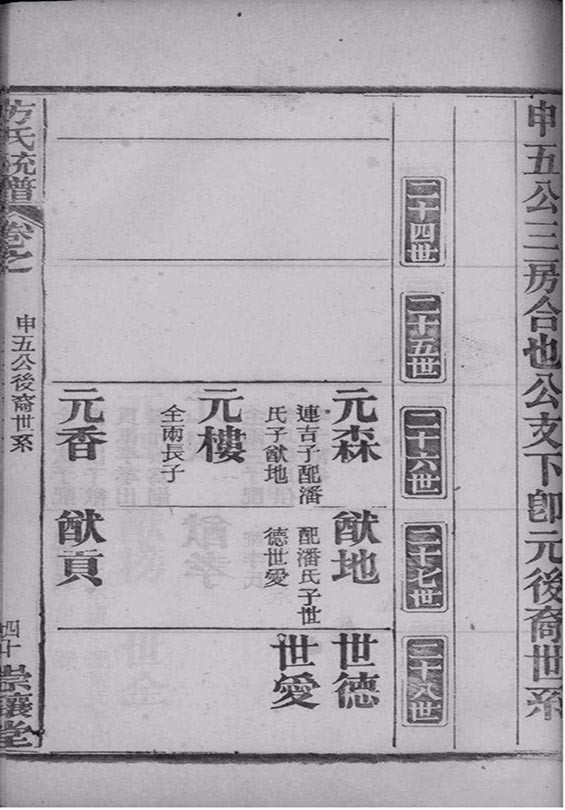 申五公三房合也公支下卽元後裔世系
二十四世
二十五世
二十六世
二十七世
二十八世
元森
連吉子配潘
氏子猷地
猷地
配潘氏子世
德世愛
世德
世愛
元樓
全雨長子
元香
猷貢
方氏統譜
卷之
申五公後裔世系
四十
崇讓堂